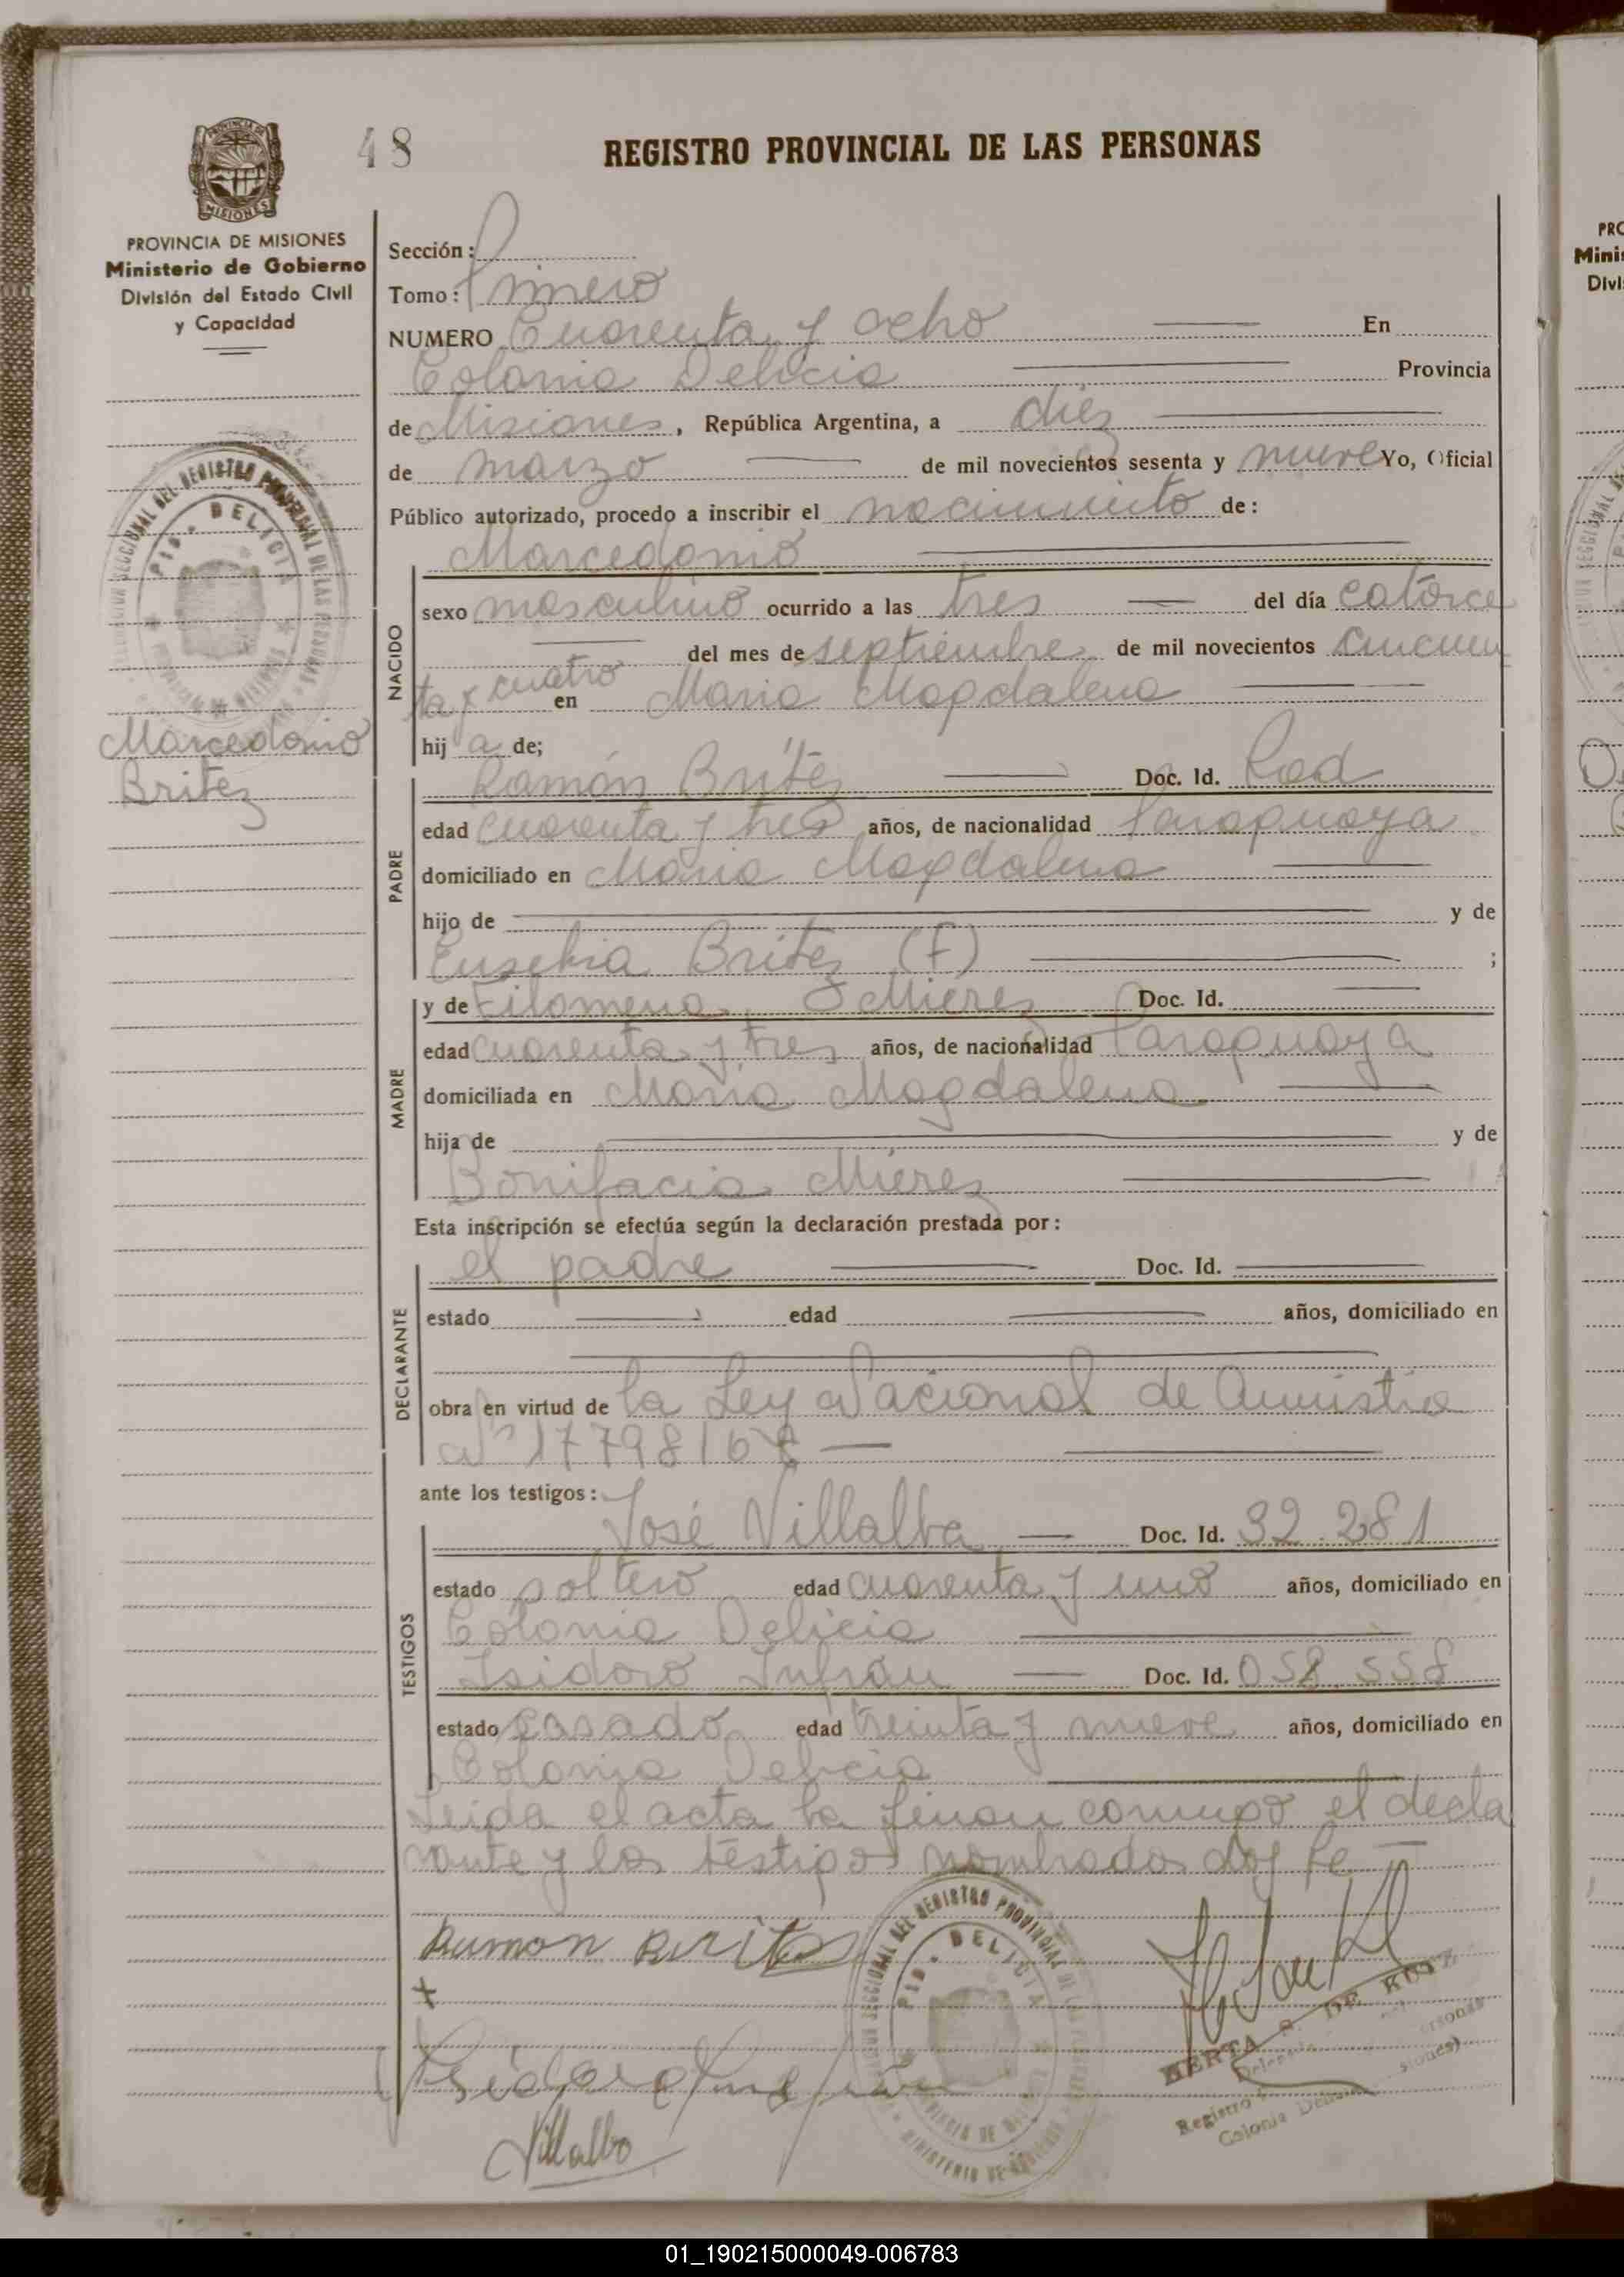 48
REGISTRO PROVINCIAL DE LAS PERSONAS
PROVINCIA DE MISIONES
Ministerio de Gobierno
División del Estado Civil
y Capacidad
Sección:
Tomo: Primero
NUMERO Cuarenta y ocho En
Colonia Delicia Provincia
de Misiones, República Argentina, a diez
de marzo de mil novecientos sesenta y nueve Yo, Oficial
Público autorizado, procedo a inscribir el nacimiento de:
Marcedonio
NACIDO
sexo masculino ocurrido a las tres del día catorce
del mes de septiembre de mil novecientos cincuen
ta y cuatro en Maria Magdalena
hij a de;
Marcedonio
Britez
PADRE
Ramón Britez Doc. Id.
edad cuarenta y tres años, de nacionalidad Paraguaya
domiciliado en Maria Magdalena
hijo de y de
Eusebia Britez (f) ;
MADRE
y de Filomena Mierez Doc. Id.
edad cuarenta y tres años, de nacionalidad Paraguaya
domiciliada en Maria Magdalena
hija de y de
Bonifacia Mierez
Esta inscripción se efectúa según la declaración prestada por:
DECLARANTE
el padre Doc. Id.
estado edad años, domiciliado en
obra en virtud de la Ley Nacional de Amnistia
Nº 17798/68
ante los testigos:
TESTIGOS
José Villalba Doc. Id. 32.281
estado soltero edad cuarenta y uno años, domiciliado en
Colonia Delicia
Isidoro Infrán Doc. Id. 058.558
estado casado edad treinta y nueve años, domiciliado en
Colonia Delicia
Leida el acta la firman conmigo el decla
rante y los testigos nombrados doy fe
Ramon Britez
DELICIA
HERTA S. DE KUTZ
Registro
Colonia
Villalba
01_190215000049-006783